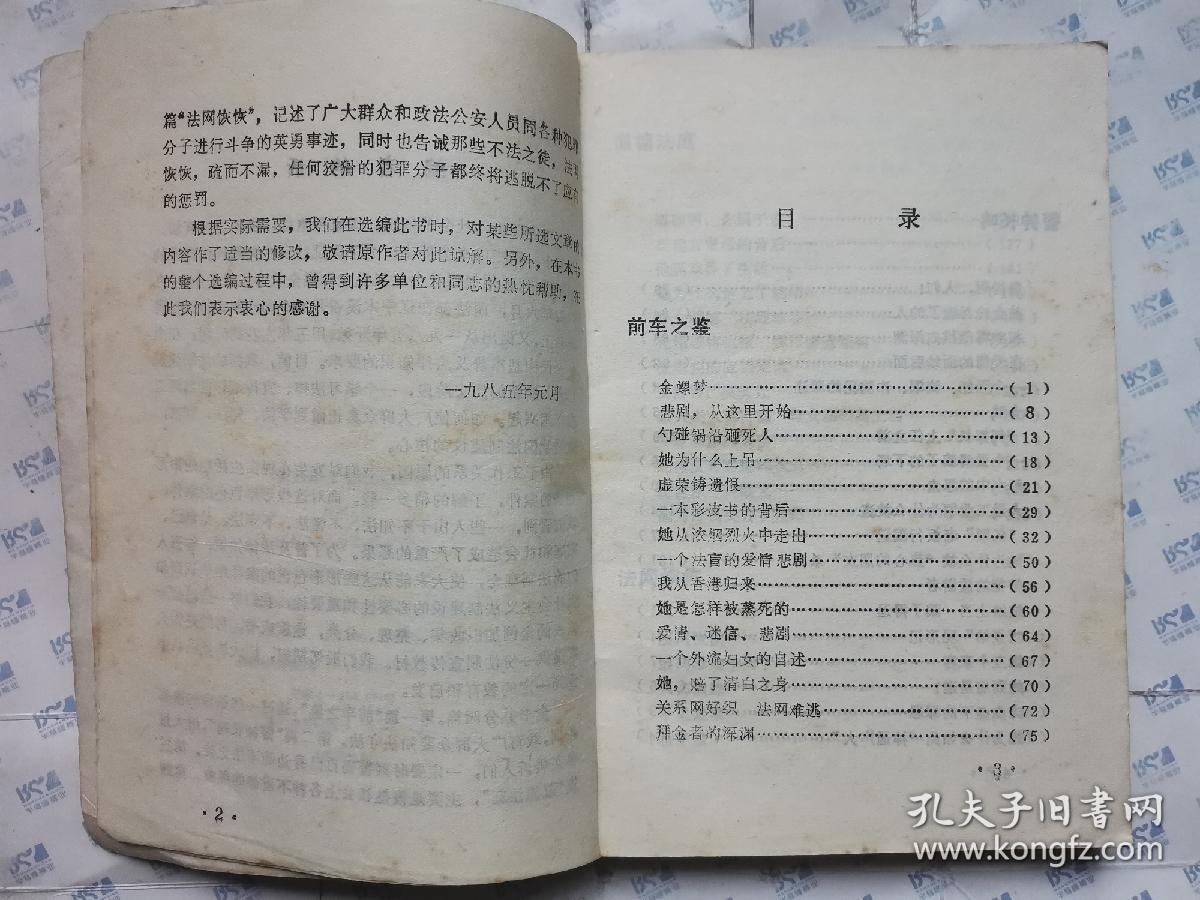 篇“法网恢恢”，记述了广大群众和政法公安人员同各种犯罪
分子进行斗争的英勇事迹，同时也告诫那些不法之徒，法网
恢恢，疏而不漏，任何狡猾的犯罪分子都终将逃脱不了应有
的惩罚。
根据实际需要，我们在选编此书时，对某些所选文章的
内容作了适当的修改，敬请原作者对此谅解。另外，在本书
的整个选编过程中，曾得到许多单位和同志的热忱帮助，在
此我们表示衷心的感谢。
一九八五年元月
·2·
目 录
前车之鉴
金螺梦……………………………………（1）
悲剧，从这里开始………………………（8）
勺碰锅沿砸死人…………………………（13）
她为什么上吊……………………………（18）
虚荣铸遗恨………………………………（21）
一本彩皮书的背后………………………（29）
她从浓烟烈火中走出……………………（32）
一个法盲的爱情悲剧……………………（50）
我从香港归来……………………………（56）
她是怎样被蒸死的………………………（60）
爱情、迷信、悲剧………………………（64）
一个外流妇女的自述……………………（67）
她，赔了清白之身………………………（70）
关系网好织 法网难逃…………………（72）
拜金者的深渊……………………………（75）
·3·
孔夫子旧书网
www.kongfz.com